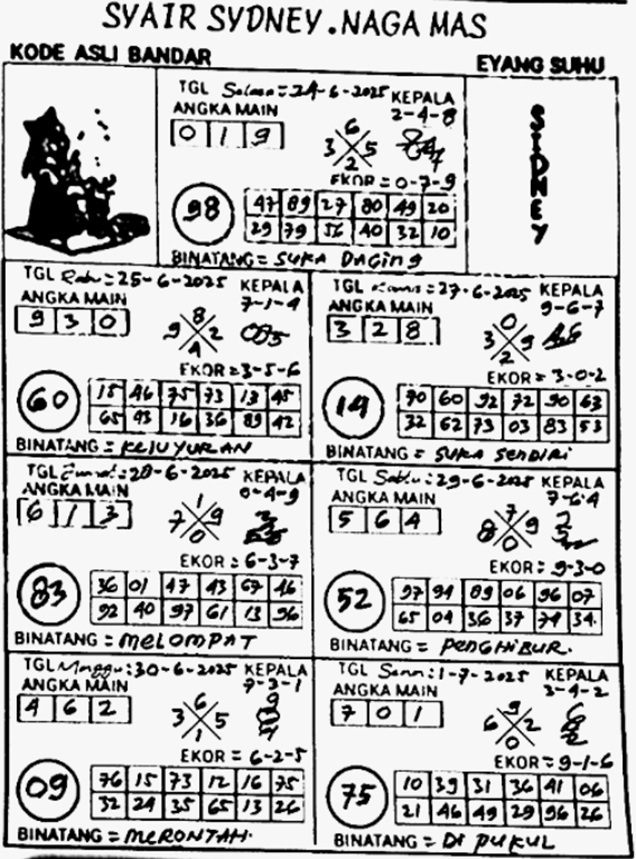 SYAIR SYDNEY.NAGA MAS
KODE ASLI BANDAR
EYANG SUHU
TGL Selasa: 24-6-2025 KEPALA
ANGKA MAIN 2-4-8
0 1 9
6
3 5
2
EKOR = 0-7-9
98
47 89 27 80 49 20
29 79 56 40 32 10
BINATANG = SUKA DAGING
SIDNEY
TGL Rabu: 25-6-2025 KEPALA
ANGKA MAIN 7-1-4
9 3 0
8
9 2
4
EKOR = 3-5-6
60
15 46 75 73 13 45
65 43 16 36 89 42
BINATANG = KELUYURAN
TGL Kamis: 27-6-2025 KEPALA
ANGKA MAIN 9-6-7
3 2 8
0
3 9
2
EKOR = 3-0-2
14
90 60 92 72 90 63
32 62 73 03 83 53
BINATANG = SUKA SENDIRI
TGL Jumat: 28-6-2025 KEPALA
ANGKA MAIN 0-4-9
6 1 3
1
7 9
0
EKOR : 6-3-7
83
36 01 47 43 67 46
92 40 97 61 13 96
BINATANG = MELOMPAT
TGL Sabtu: 29-6-2025 KEPALA
ANGKA MAIN 7-6-4
5 6 4
7
8 9
0
EKOR : 9-3-0
52
97 94 09 06 96 07
65 04 36 37 74 34
BINATANG = PENGHIBUR.
TGL Minggu: 30-6-2025 KEPALA
ANGKA MAIN 7-3-1
4 6 2
6
3 5
1
EKOR = 6-2-5
09
76 15 73 12 16 75
32 24 35 65 13 26
BINATANG = MERONTAH.
TGL Senin: 1-7-2025 KEPALA
ANGKA MAIN 3-4-2
7 0 1
9
6 2
0
EKOR = 9-1-6
75
10 39 31 36 41 06
21 46 49 29 96 26
BINATANG = DI PUKUL